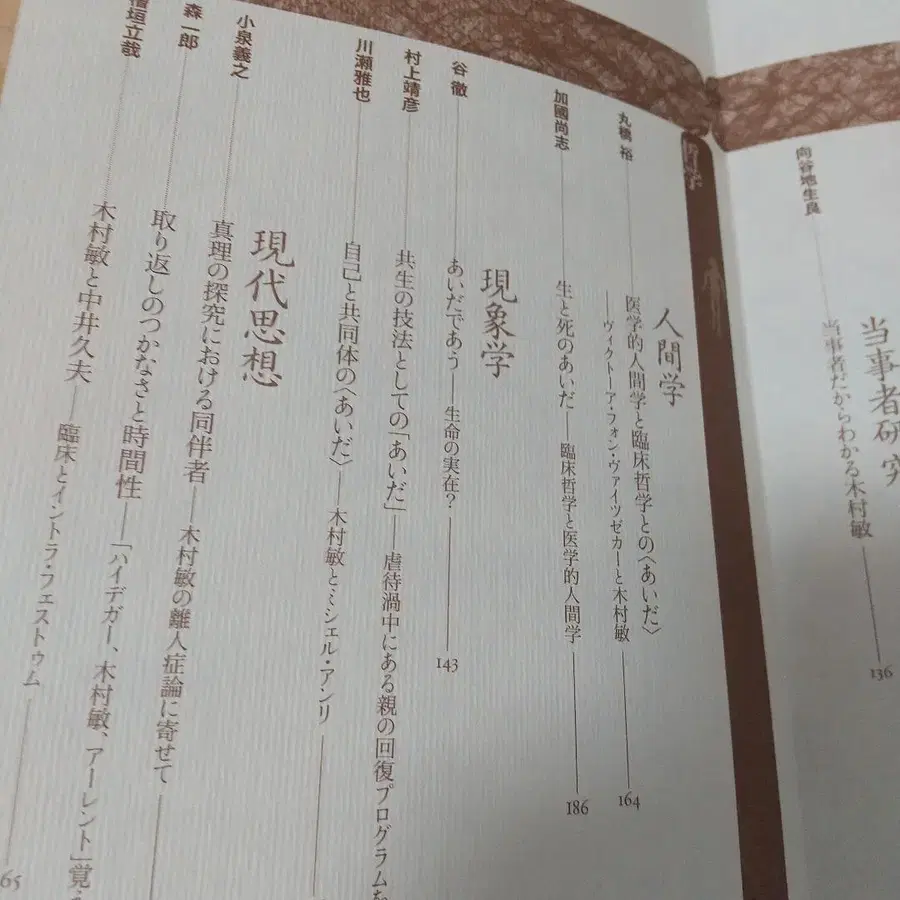 当事者研究
向谷地生良
当事者だからわかる木村敏
136
哲学
人間学
丸橋 裕
医学的人間学と臨床哲学との〈あいだ〉
――ヴィクトーア・フォン・ヴァイツゼカーと木村敏
164
加國尚志
生と死のあいだ――臨床哲学と医学的人間学
186
現象学
谷 徹
あいだであう――生命の実在?
143
村上靖彦
共生の技法としての「あいだ」――虐待渦中にある親の回復プログラムを
川瀬雅也
自己と共同体の〈あいだ〉――木村敏とミシェル・アンリ
現代思想
小泉義之
真理の探究における同伴者――木村敏の離人症論に寄せて
森一郎
取り返しのつかなさと時間性――「ハイデガー、木村敏、アーレント」覚え
檜垣立哉
木村敏と中井久夫――臨床とイントラ・フェストゥム
65